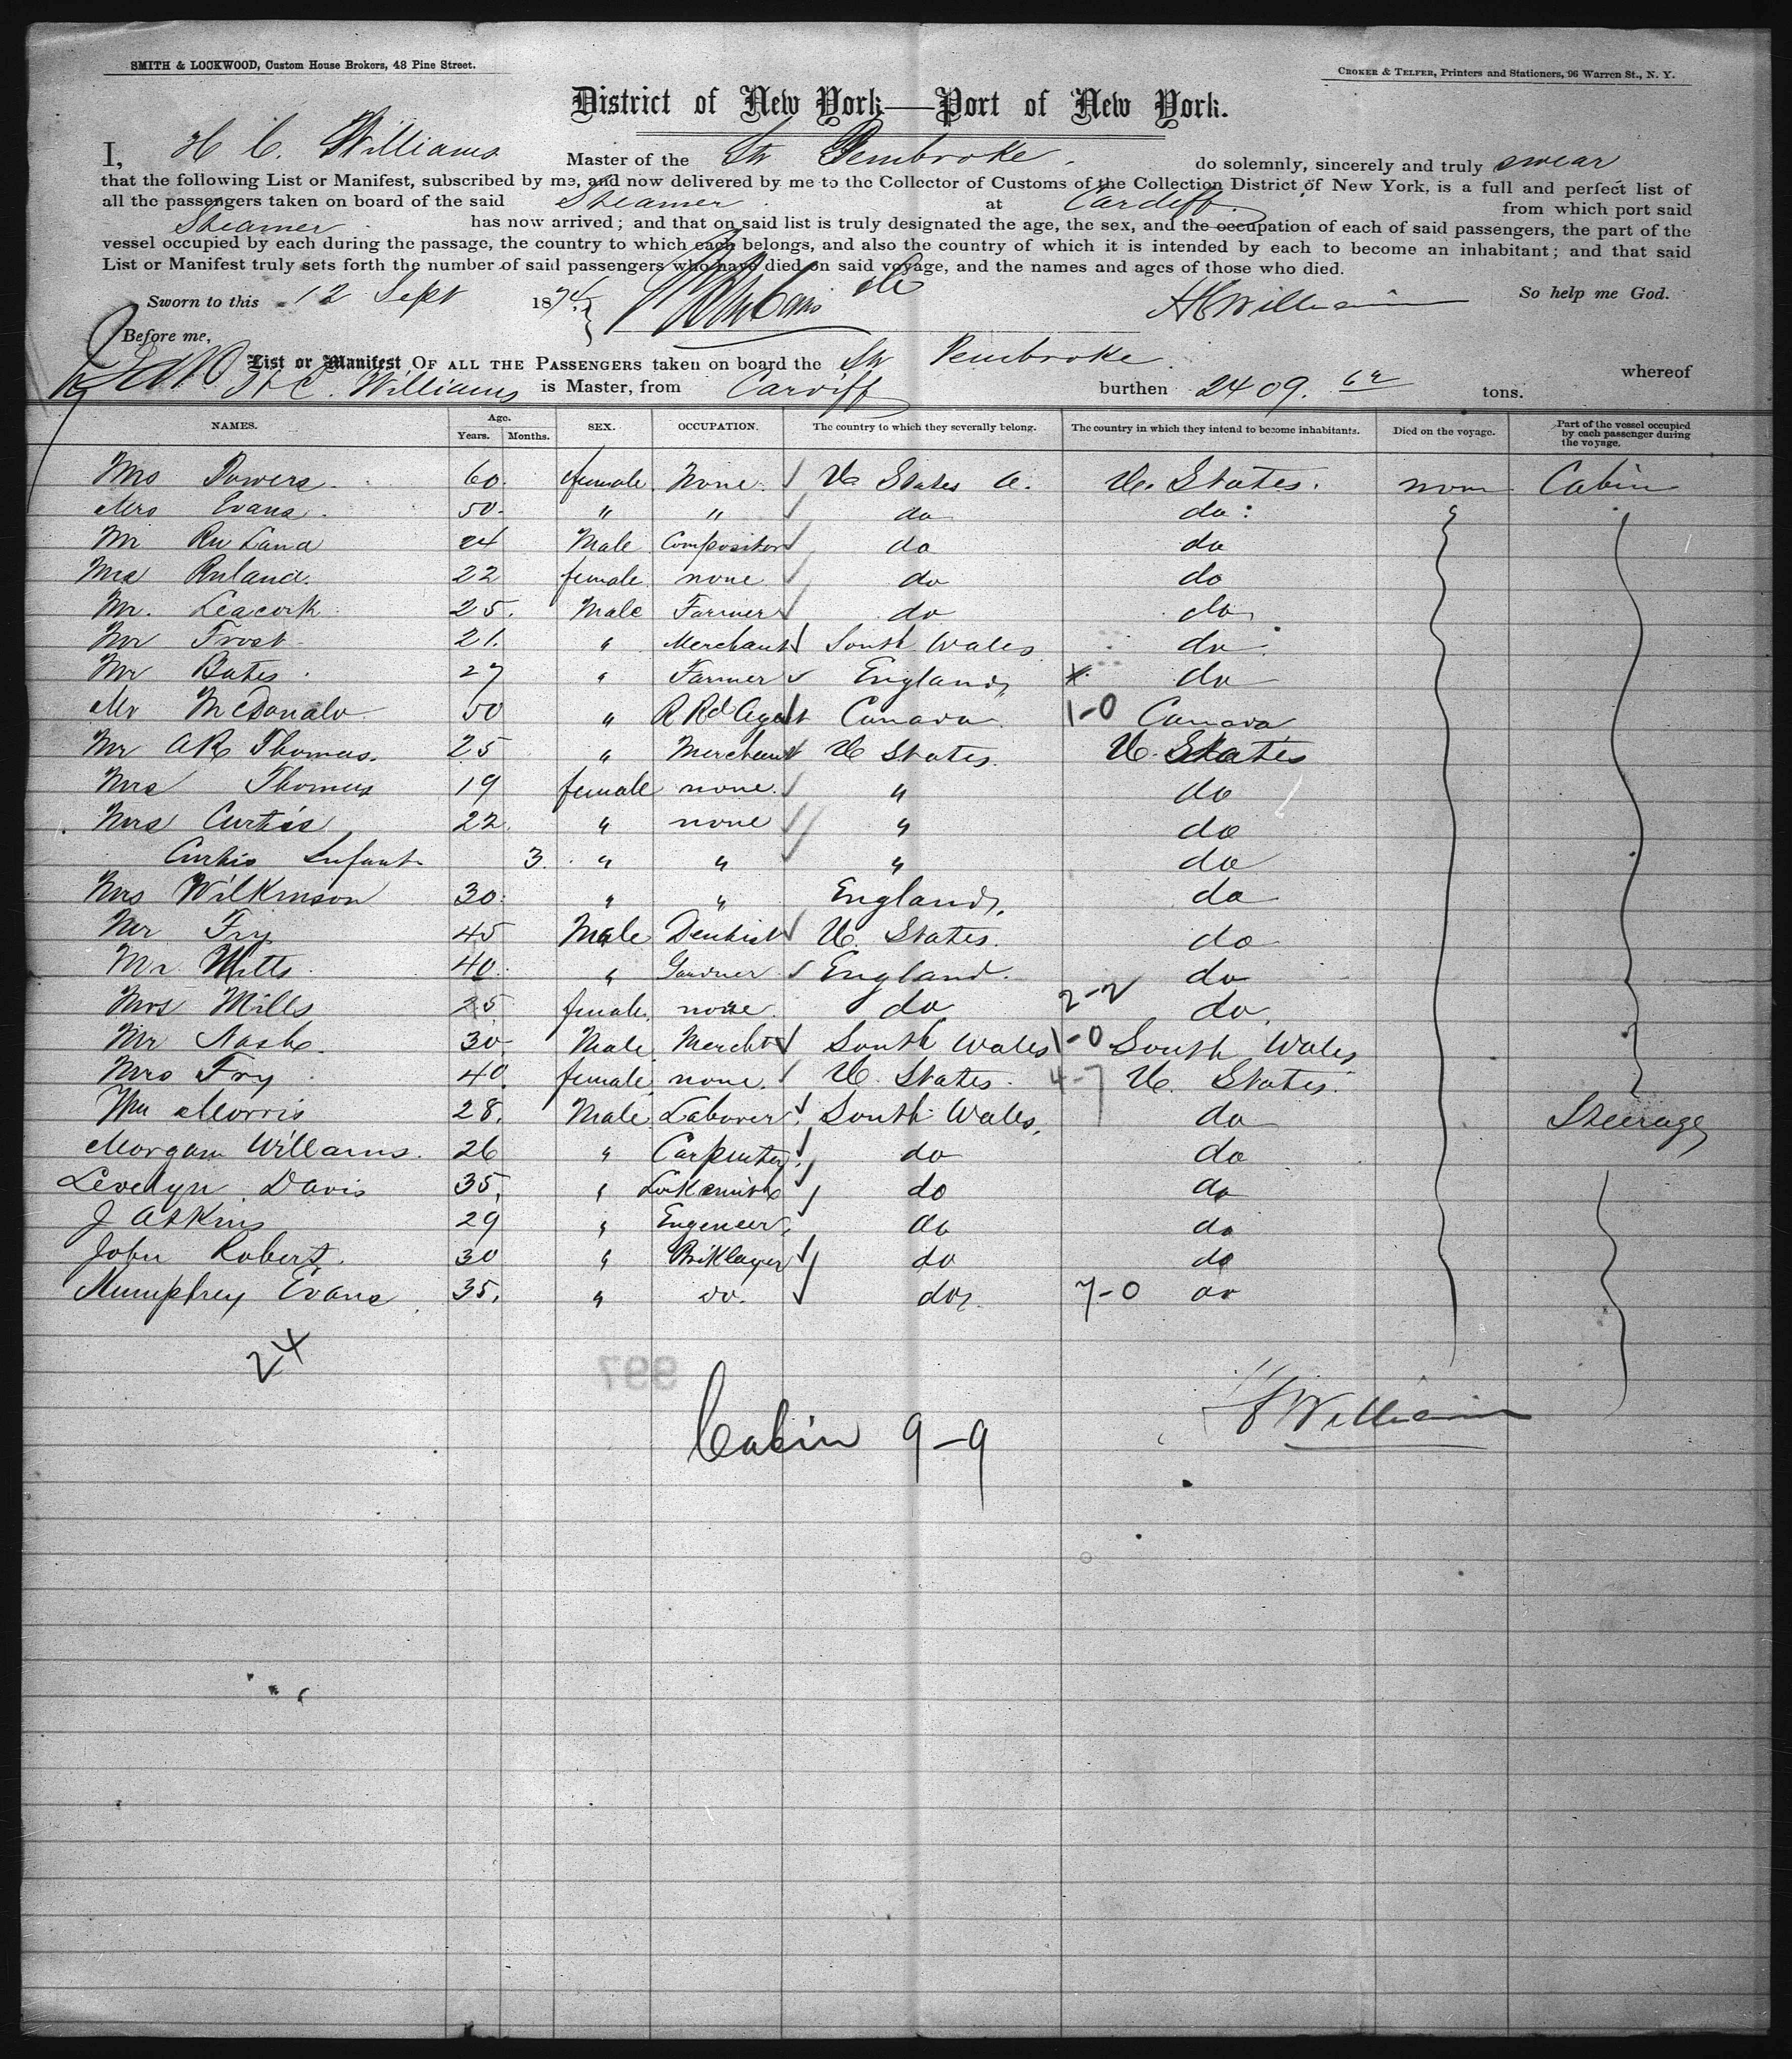 SMITH & LOCKWOOD, Custom House Brokers, 48 Pine Street.
CROKER & TELFER, Printers and Stationers, 96 Warren St., N. Y.
District of New York—Port of New York.
I, H C. Williams Master of the Str Pembroke. do solemnly, sincerely and truly swear
that the following List or Manifest, subscribed by me, and now delivered by me to the Collector of Customs of the Collection District of New York, is a full and perfect list of
all the passengers taken on board of the said Steamer at Cardiff from which port said
Steamer has now arrived; and that on said list is truly designated the age, the sex, and the occupation of each of said passengers, the part of the
vessel occupied by each during the passage, the country to which each belongs, and also the country of which it is intended by each to become an inhabitant; and that said
List or Manifest truly sets forth the number of said passengers who have died on said voyage, and the names and ages of those who died.
Sworn to this 12 Sept 1874 HCWilliams So help me God.
Before me,
List or Manifest OF ALL THE PASSENGERS taken on board the Str Pembroke whereof
H C. Williams is Master, from Cardiff burthen 2409. tons.
NAMES. Age. Years. Months. SEX. OCCUPATION. The country to which they severally belong. The country in which they intend to become inhabitants. Died on the voyage. Part of the vessel occupied by each passenger during the voyage.
Mrs Powers 60. female None. U States A. U. States. none Cabin
Mrs Evans 50. " " do do
Mr Ruland 24 Male Compositor do do
Mrs Ruland. 22 female none do do
Mr. Leacock 25. Male Farmer do do
Mr Frost 21. " Merchant South Wales do
Mr Bates 27 " Farmer England do
Mr McDonald 50 " R Rd Agent Canada 1-0 Canada
Mr AR Thomas. 25 " Merchant U States. U. States
Mrs Thomas 19 female none. " do
Mrs Curtis 22. " none " do
Curtis Infant 3. " " " do
Mrs Wilkinson 30. " " England. do
Mr Fry 45 Male Dentist U. States. do
Mr Mills 40. " Gardner England. do
Mrs Mills 25 female. none. do 2-2 do.
Mr Nash. 30. Male Mercht South Wales 1-0 South Wales
Mrs Fry 40. female none. U. States. 4-7 U. States.
Wm Morris 28. Male Laborer. South Wales. do Steerage
Morgan Williams. 26 " Carpenter. do do
Levelyn Davis 35. " Locksmith do do
J Atkins 29 " Engeneer. do do
John Robert. 30 " Briklayer do do
Mumphrey Evans 35. " do. do. 7-0 do
24
997
Cabin 9-9
HCWilliams